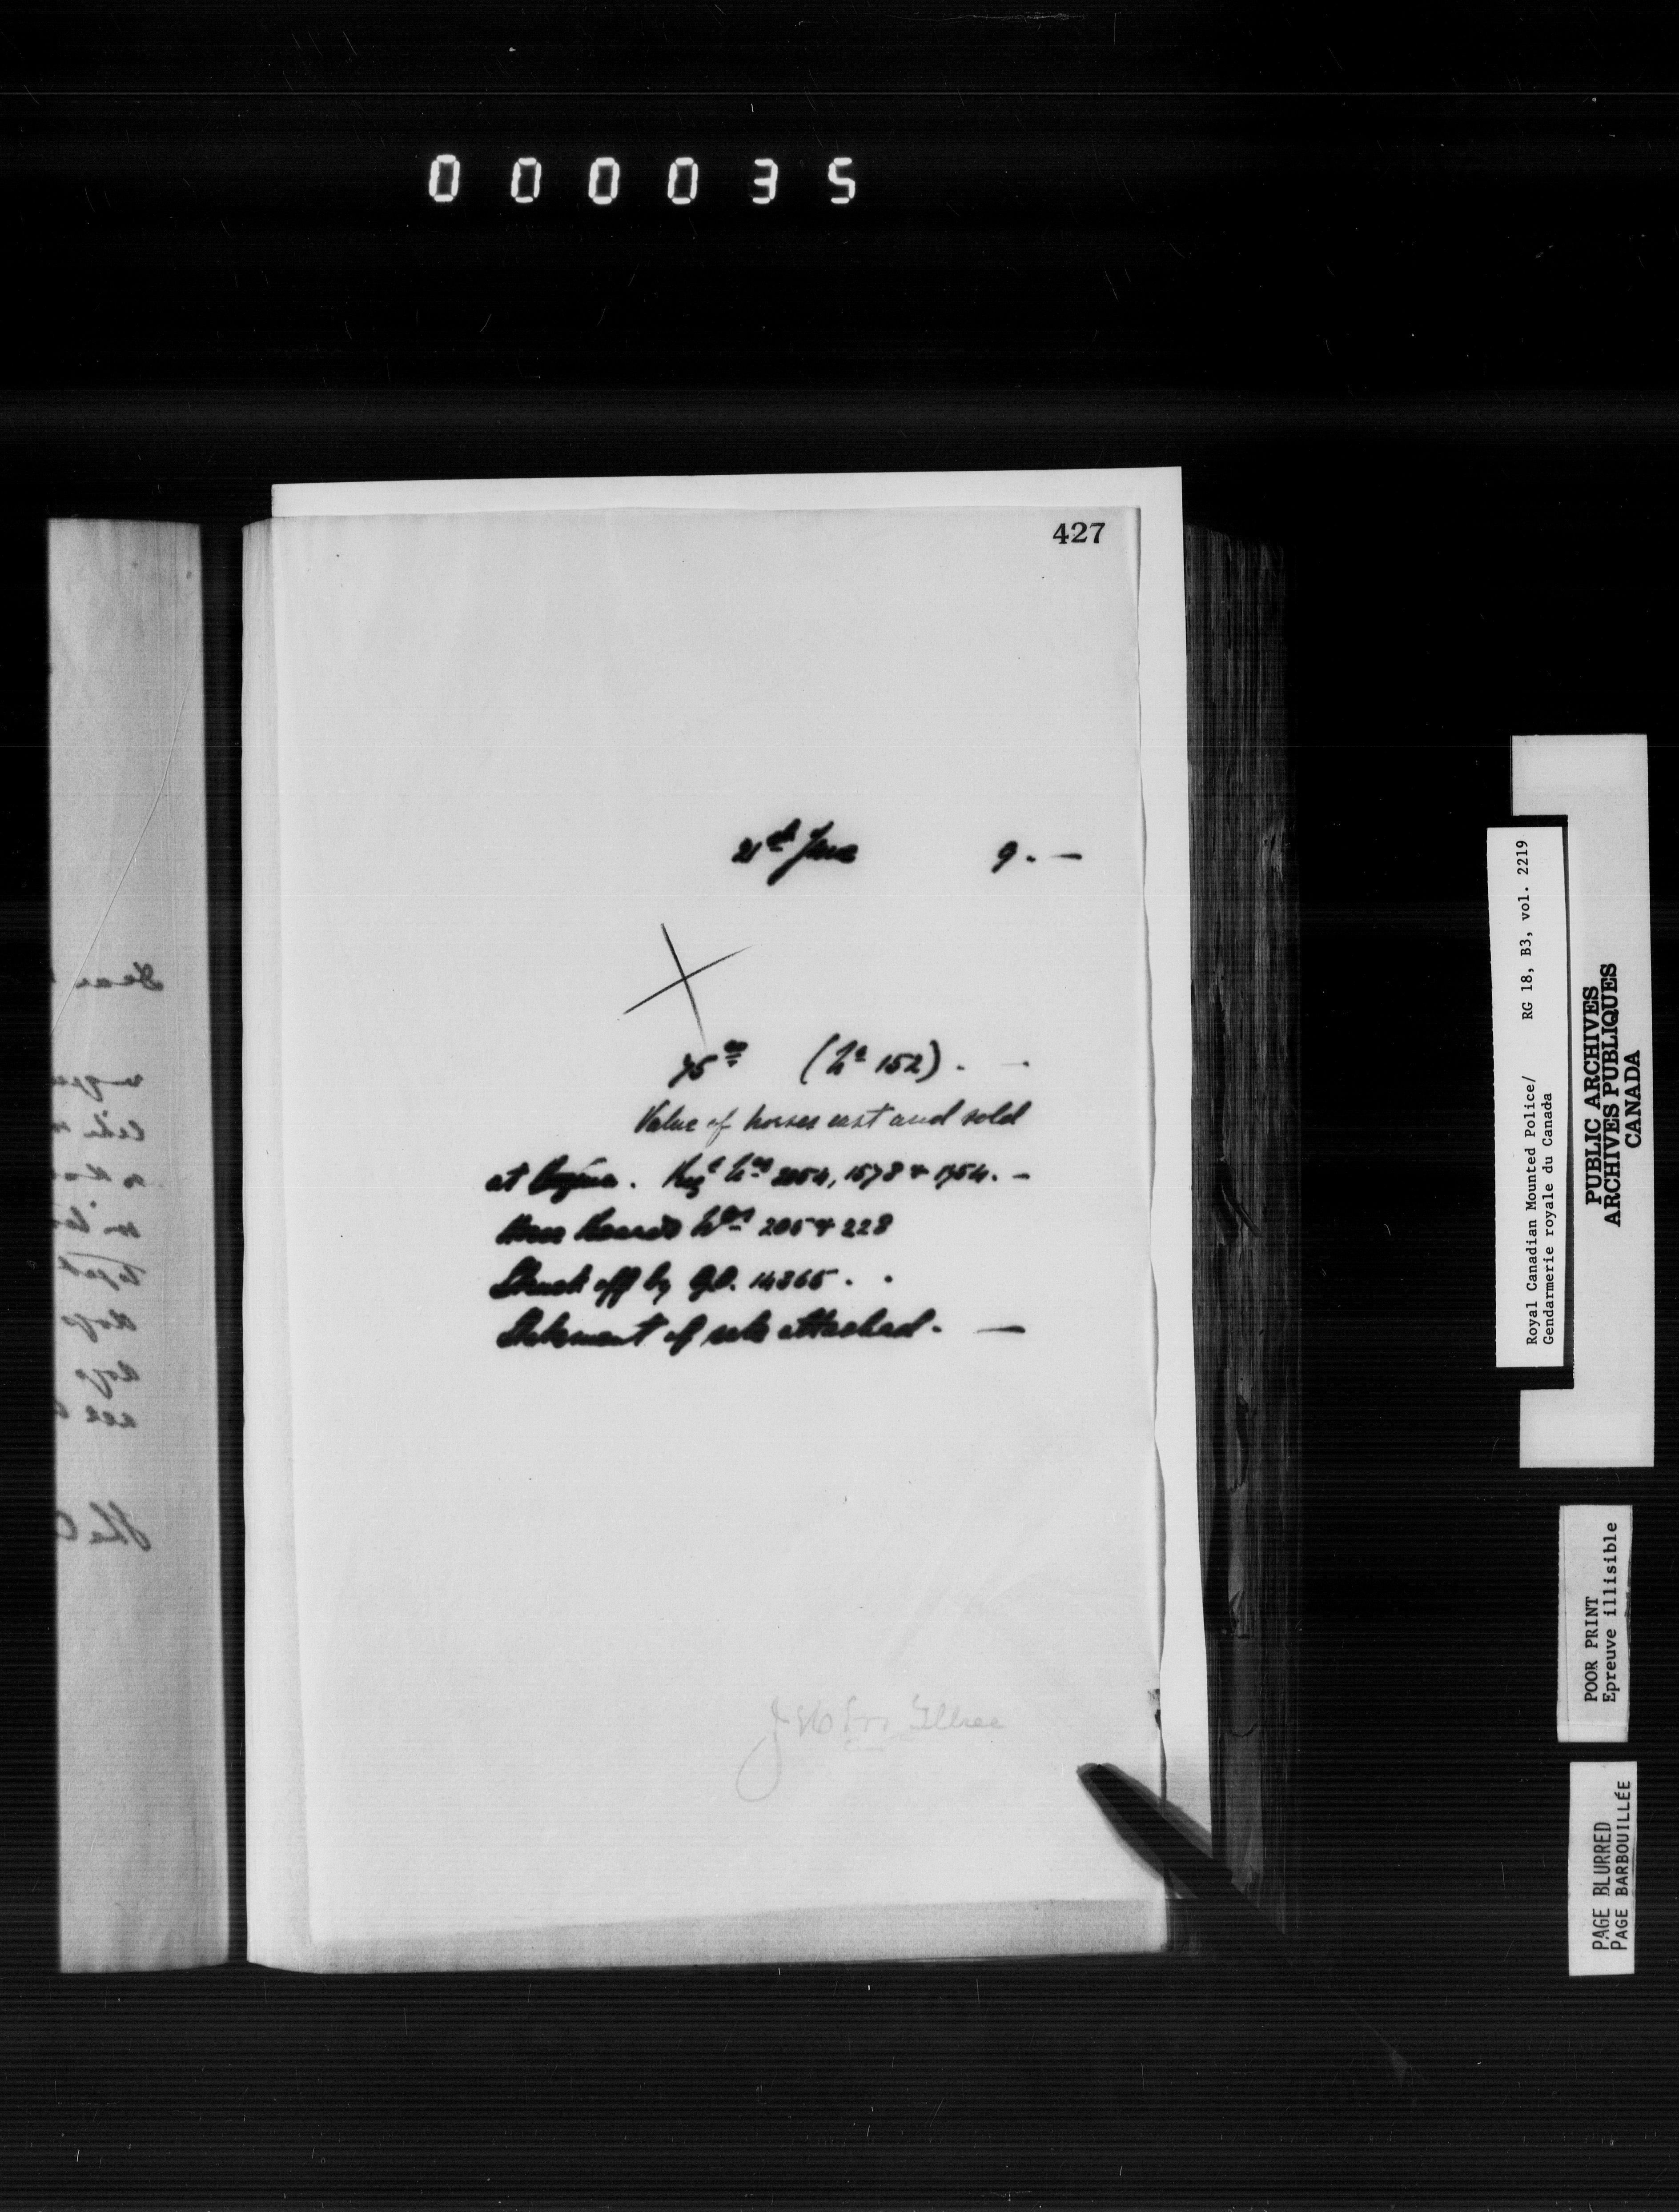 000035
427
21st June 9. —
75 00 (No 152). —
Value of horses cast and sold
at Regina. Reg'l Nos 2054, 1578 & 1754. —
Horse Boards Nos 205 & 228
Struck off by G.O. 14365. .
Statement of sale attached. —
Royal Canadian Mounted Police/ RG 18, B3, vol. 2219
Gendarmerie royale du Canada
PUBLIC ARCHIVES
ARCHIVES PUBLIQUES
CANADA
POOR PRINT
Epreuve illisible
PAGE BLURRED
PAGE BARBOUILLÉE